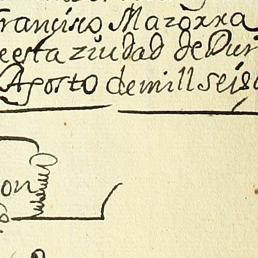 francisco Mazorra
eesta ziudad de Dur
Agosto de mill seis
on